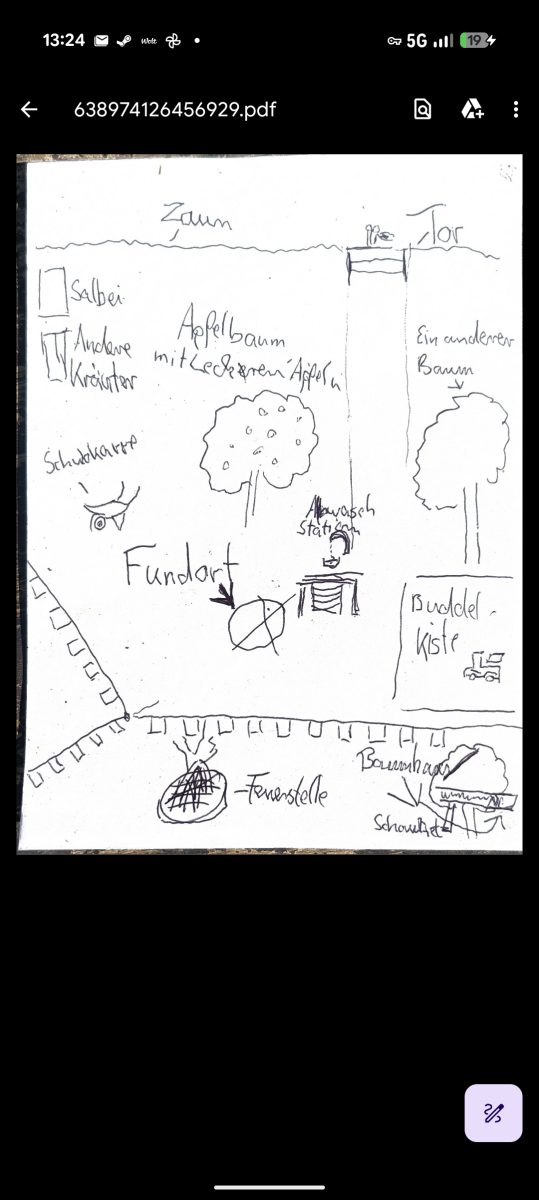 13:24
5G
19
638974126456929.pdf
Zaun
Tor
Salbei
Andere
Kräuter
Apfelbaum
mit Leckeren Äpfeln
Ein anderer
Baum
Schubkarre
Abwasch
Station
Fundort
Buddel-
kiste
Baumhaus
Feuerstelle